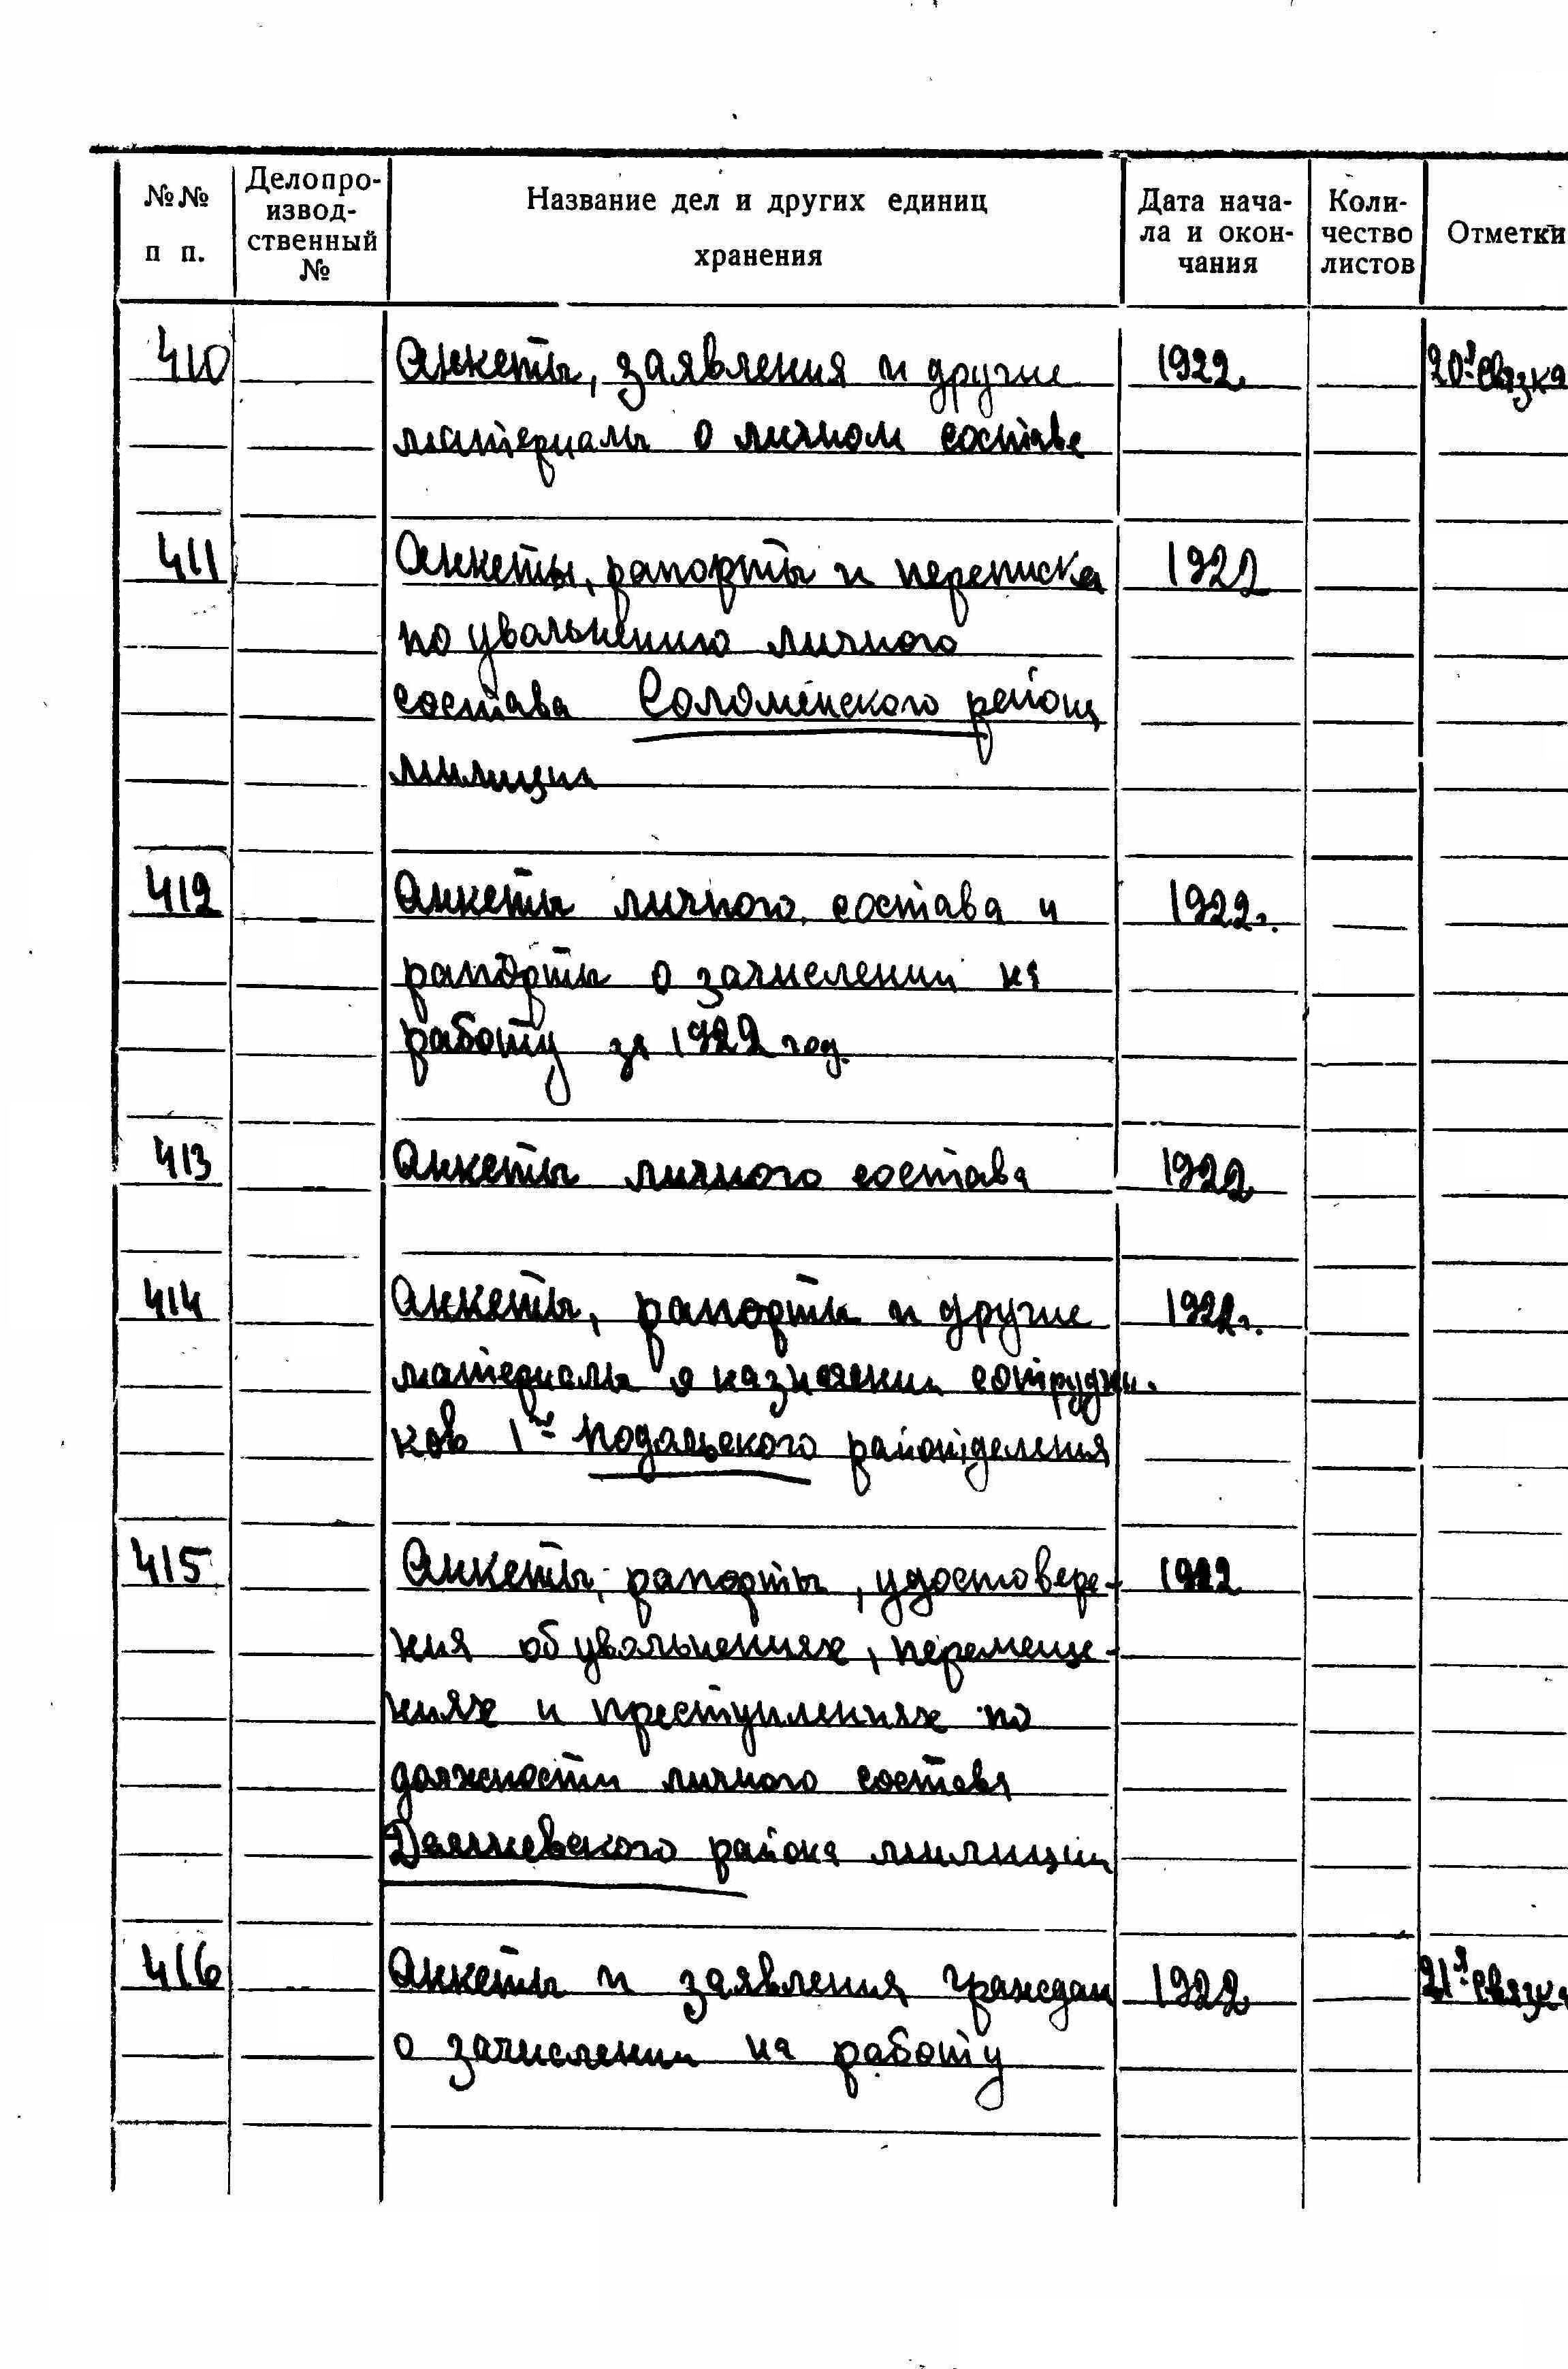 №№ п п.
Делопро-
извод-
ственный
№
Название дел и других единиц
хранения
Дата нача-
ла и окон-
чания
Коли-
чество
листов
Отметки
410 Анкеты, заявления и другие 1922 20-я связка
материалы о личном составе
411 Анкеты, рапорты и переписка 1922
по увольнению личного
состава Соломенского района
милиции
412 Анкеты личного состава и 1922г.
рапорты о зачислении на
работу за 1922 год.
413 Анкеты личного состава 1922
414 Анкеты, рапорты и другие 1922г.
материалы о назначении сотрудни-
ков 1го Подольского райотделения
415 Анкеты, рапорты, удостовере- 1922
ния об увольнениях, перемеще-
ниях и преступлениях по
должности личного состава
района милиции
416 Анкеты и заявления граждан 1922 21-я связка
о зачислении на работу